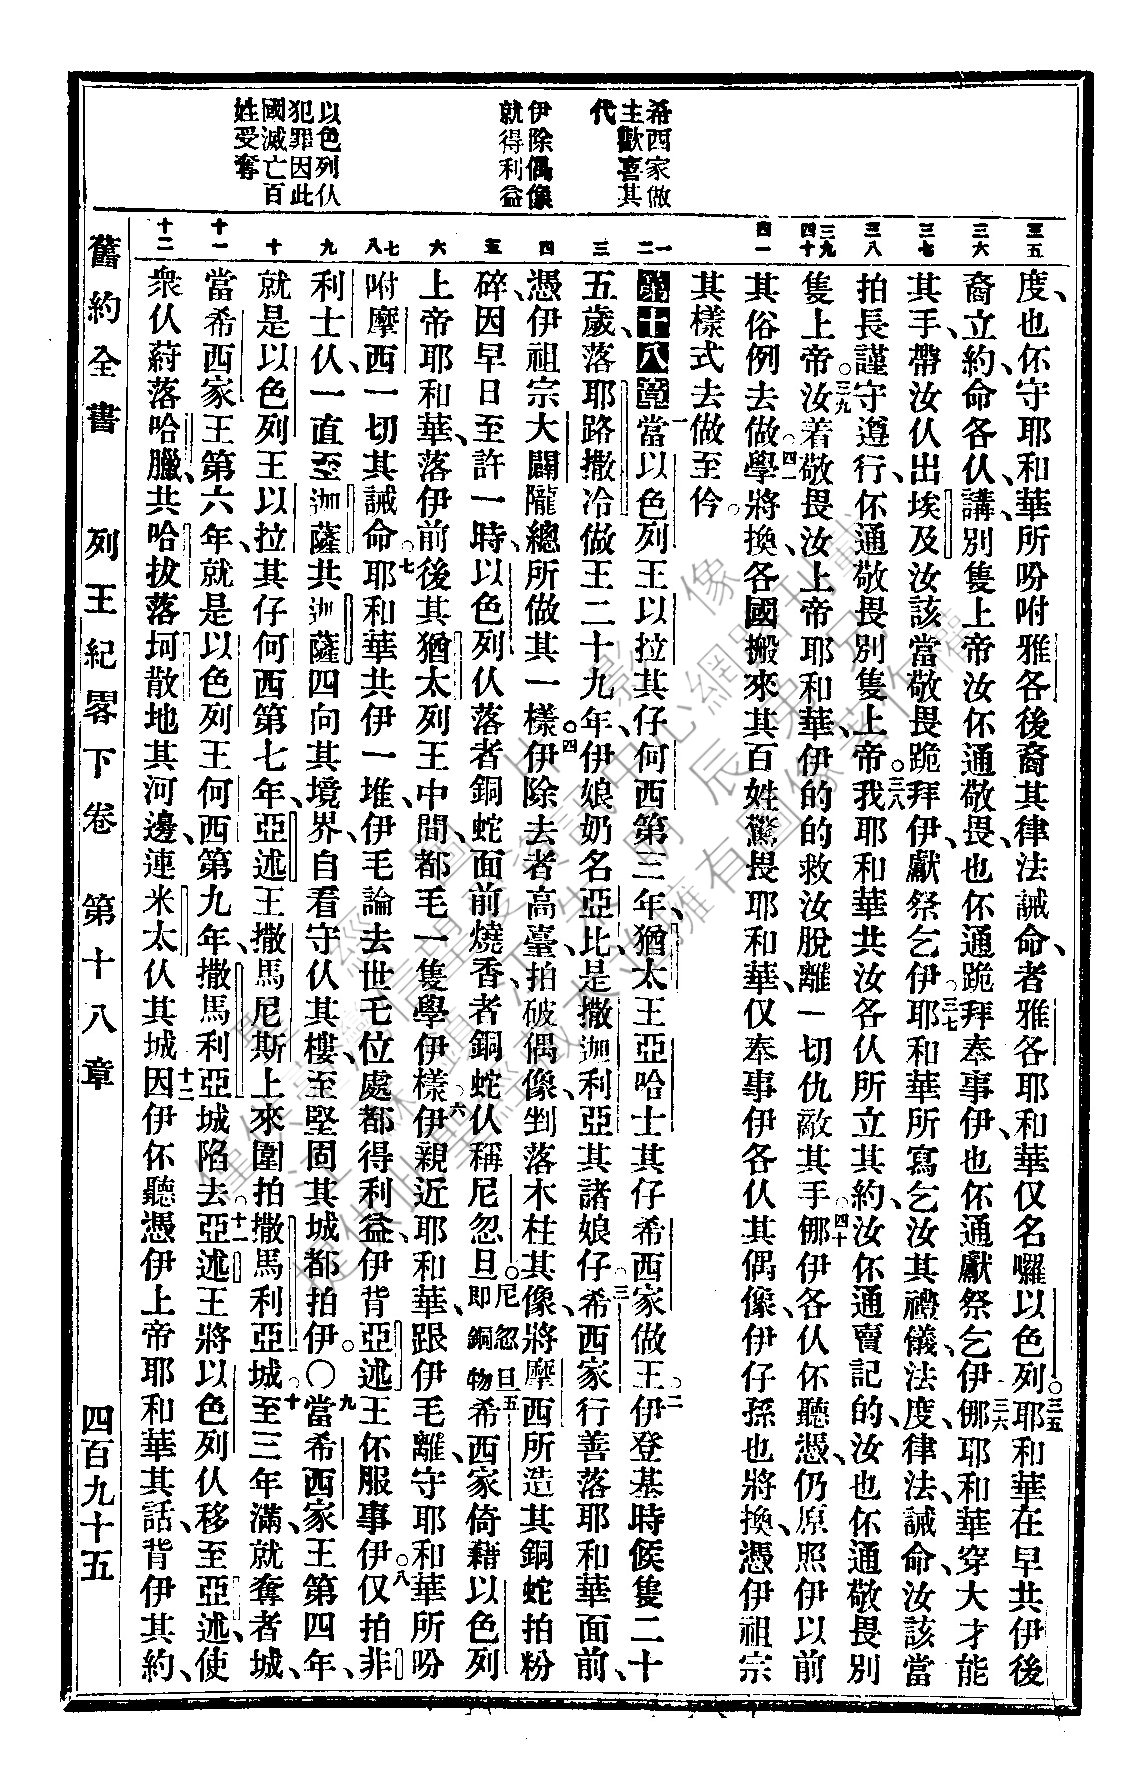 希西家做
主歡喜其
代
伊除偶像
就得利益
以色列仫
犯罪因此
國滅亡百
姓受奪
三五
三六
三七
三八
三九
四十
四一
一
二
三
四
五
六
七
八
九
十
十一
十二
度、也伓守耶和華所吩咐雅各後裔其律法誡命、者雅各耶和華仅名囉以色列。三五耶和華在早共伊後
裔立約、命各仫講、別隻上帝汝伓通敬畏、也伓通跪拜奉事伊、也伓通獻祭乞伊、三六㑚耶和華穿大才能
其手、帶汝仫出埃及、汝該當敬畏跪拜伊、獻祭乞伊。三七耶和華所寫乞汝其禮儀、法度、律法、誡命、汝該當
拍長謹守遵行、伓通敬畏別隻上帝。三八我耶和華共汝各仫所立其約、汝伓通賣記的、汝也伓通敬畏別
隻上帝。三九汝着敬畏汝上帝耶和華、伊的的救汝脫離一切仇敵其手。四十㑚伊各仫伓聽憑、仍原照伊以前
其俗例去做。四一學將換各國搬來其百姓驚畏耶和華、仅奉事伊各仫其偶像、伊仔孫也將換、憑伊祖宗
其樣式去做至仱。
第十八章一當以色列王以拉其仔何西第三年、猶太王亞哈士其仔希西家做王。二伊登基時候隻二十
五歲、落耶路撒冷做王二十九年、伊娘奶名亞比、是撒迦利亞其諸娘仔。三希西家行善落耶和華面前、
憑伊祖宗大闢隴總所做其一樣。四伊除去者高臺、拍破偶像、剉落木柱其像、將摩西所造其銅蛇拍粉
碎、因早日至許一時、以色列仫落者銅蛇面前燒香、者銅蛇仫稱尼忽旦。尼忽旦即銅物五希西家倚藉以色列
上帝耶和華、落伊前後其猶太列王中間、都毛一隻學伊樣。六伊親近耶和華、跟伊毛離、守耶和華所吩
咐摩西一切其誡命。七耶和華共伊一堆、伊毛論去世乇位處都得利益、伊背亞述王伓服事伊。八仅拍非
利士仫一直至迦薩、共迦薩四向其境界、自看守仫其樓、至堅固其城都拍伊。〇九當希西家王第四年、
就是以色列王以拉其仔何西第七年、亞述王撒馬尼斯上來圍拍撒馬利亞城。十至三年滿、就奪者城、
當希西家王第六年、就是以色列王何西第九年、撒馬利亞城陷去。十一亞述王將以色列仫移至亞述、使
衆仫䓊落哈臘、共哈拔落坷散地其河邊、連米太仫其城、十二因伊伓聽憑伊上帝耶和華其話、背伊其約、
舊約全書　列王紀畧下卷　第十八章　四百九十五